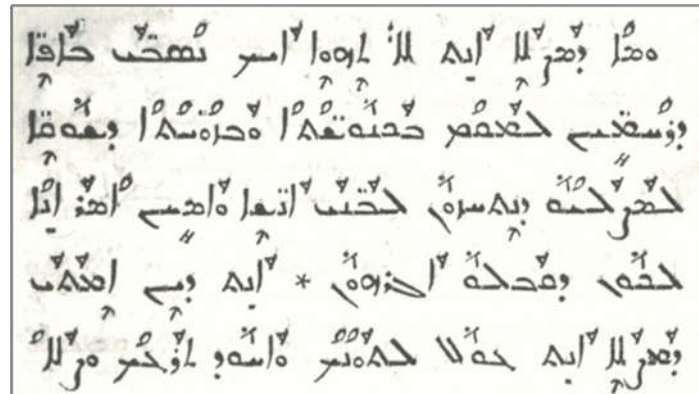 ܘܡܐ ܕܡܨܠܐ ܐܢܬ ܠܐ ܬܗܘܐ ܐܝܟ ܢܣܒܝ̈ ܒܐܦ̈ܐ
ܕܪܚܡܝܢ ܠܡܩܡ ܒܟܢܘܫ̈ܬܐ ܘܒܙܘ̈ܝܬܐ ܕܫܘܩ̈ܐ
ܠܡܨܠܝܘ ܕܢܬܚܙܘܢ ܠܒܢܝ̈ ܐܢܫ̈ܐ ܘܐܡܝܢ ܐܡܪ ܐܢܐ
ܠܟܘܢ ܕܩܒܠܘ ܐܓܪܗܘܢ * ܐܢܬ ܕܝܢ ܐܡܬܝ
ܕܡܨܠܐ ܐܢܬ ܥܘܠ ܠܬܘܢܟ ܘܐܚܘܕ ܬܪܥܟ ܘܨܠܐ